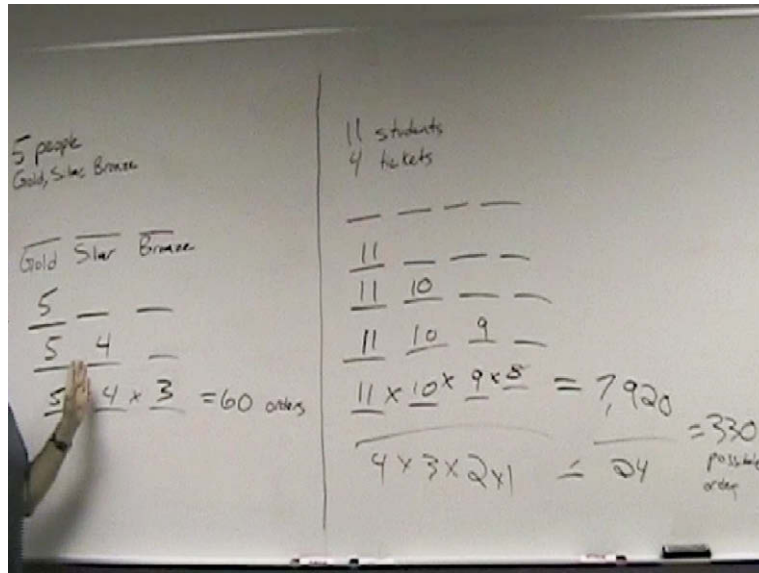 5 people
Gold, Silver, Bronze
Gold Silver Bronze
5
5 4
5 4 × 3 = 60 orders
11 students
4 tickets
11
11 10
11 10 9
11 × 10 × 9 × 8 = 7,920
4 × 3 × 2 × 1 = 24
= 330
possible
orders